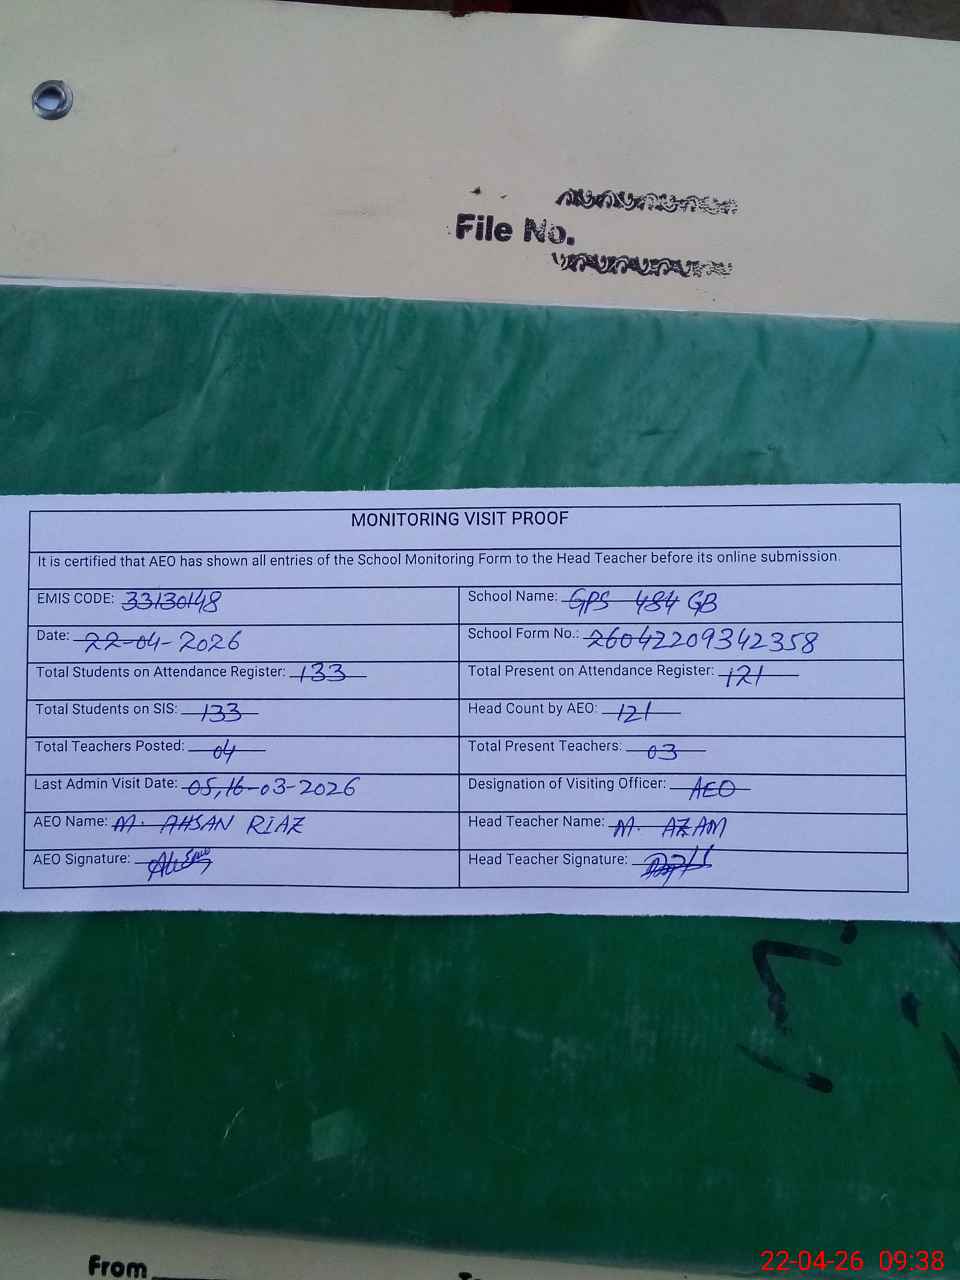 File No.
MONITORING VISIT PROOF
It is certified that AEO has shown all entries of the School Monitoring Form to the Head Teacher before its online submission.
EMIS CODE: 33130148
School Name: GPS 484 GB
Date: 22-04-2026
School Form No.: 26042209342358
Total Students on Attendance Register: 133
Total Present on Attendance Register: 121
Total Students on SIS: 133
Head Count by AEO: 121
Total Teachers Posted: 04
Total Present Teachers: 03
Last Admin Visit Date: 05,16-03-2026
Designation of Visiting Officer: AEO
AEO Name: M. AHSAN RIAZ
Head Teacher Name: M. AZAM
AEO Signature:
Head Teacher Signature:
From
22-04-26 09:38